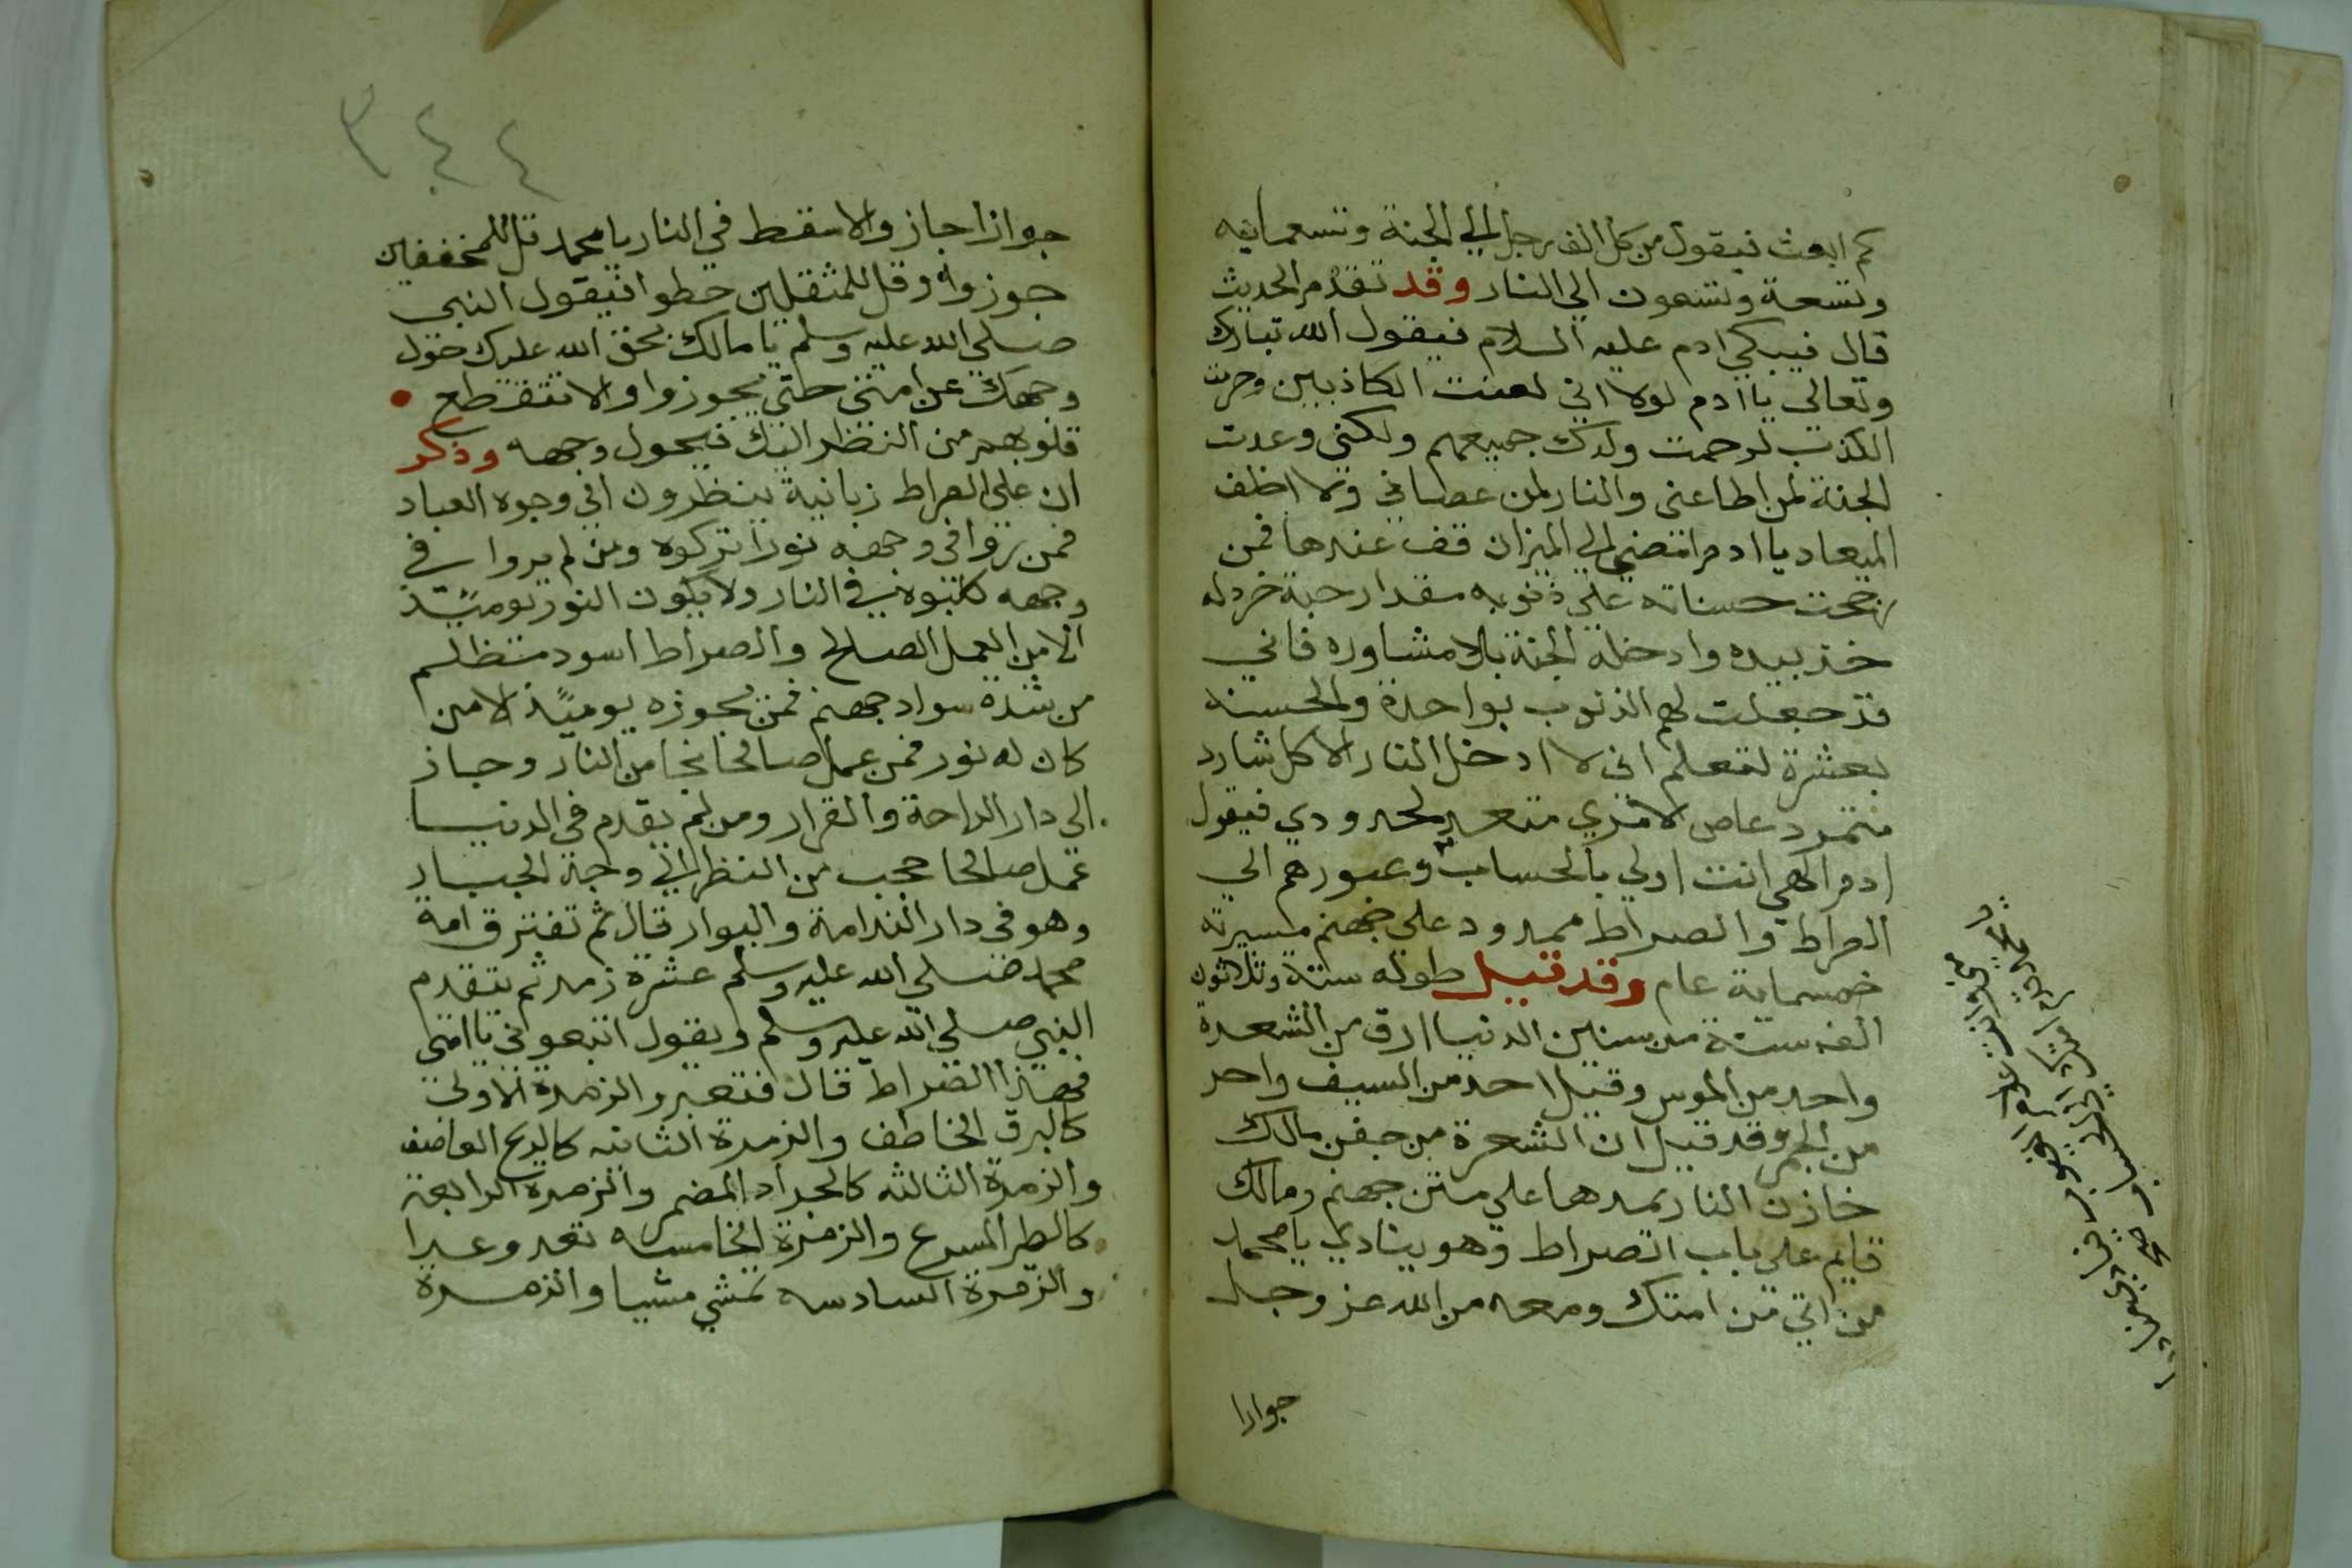 كم ابعث فيقول من كل الف رجل الي الجنة وتسعماية
وتسعة وتسعون الي النار وقد تقدم الحديث
قال فيبكي ادم عليه السلام فيقول الله تبارك
وتعالي يا ادم لولا اني لعنت الكاذبين وحرمت
الكذب لرحمت ولدك جميعهم ولكني وعدت
الجنة لمن اطاعني والنار لمن عصاني ولا اخلف
الميعاد يا ادم امضي الي الميزان قف عندها فمن
رجحت حسناته علي ذنوبه مقدار حبة خردله
خذ بيده وادخله الجنة بلا مشاوره فاني
قد جعلت لهم الذنوب بواحدة والحسنه
بعشرة لتعلم اني لا ادخل النار الا كل شارد
متمرد عاص لامري متعد لحدودي فيقول
ادم الهي انت اولي بالحساب وعبورهم الي
الصراط والصراط ممدود علي جهنم مسيرته
خمسماية عام وقد قيل طوله ستة وثلاثون
الف سنة من سنين الدنيا ادق من الشعرة
واحد من الموس وقيل احد من السيف واحر
من الجمر وقد قيل ان الشعرة من جفن مالك
خازن النار يمدها علي متن جهنم ومالك
قايم علي باب الصراط وهو ينادي يا محمد
من اتي من امتك ومعه من الله عز وجل
جوازا
٣٤٤
جوازا جاز والا سقط في النار يا محمد قل للمخففين
جوزوا وقل للمثقلين حطوا فيقول النبي
صلي الله عليه وسلم يا مالك بحق الله عليك حول
وجهك عن امتي حتي يجوزوا والا تتقطع
قلوبهم من النظر اليك فيحول وجهه وذكر
ان علي الصراط زبانية ينظرون في وجوه العباد
فمن يروا في وجهه نورا تركوه ومن لم يروا في
وجهه كبوه في النار ولا يكون النور يوميئذ
الا من العمل الصالح والصراط اسود مظلم
من شدة سواد جهنم فمن يجوزه يوميئذ الا من
كان له نور فمن عمل صالحا نجا من النار وجاز
الي دار الراحة والقرار ومن لم يقدم في الدنيا
عمل صالحا حجب من النظر الي وجه الجبار
وهو في دار الندامة والبوار قال ثم تفترق امة
محمد صلي الله عليه وسلم عشرة زمر ثم يتقدم
النبي صلي الله عليه وسلم ويقول اتبعوني يا امتي
فهذا الصراط قال فتعبر والزمرة الاولي
كالبرق الخاطف والزمرة الثانيه كالريح العاصف
والزمرة الثالثه كالجواد المضمر والزمرة الرابعة
كالطير المسرع والزمرة الخامسه تعدو عدوا
والزمرة السادسه تمشي مشيا والزمرة